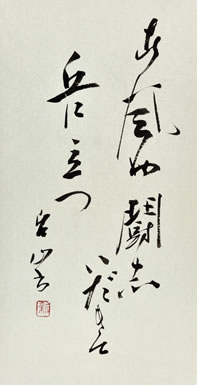 春風や闘志
いだきて
丘に立つ